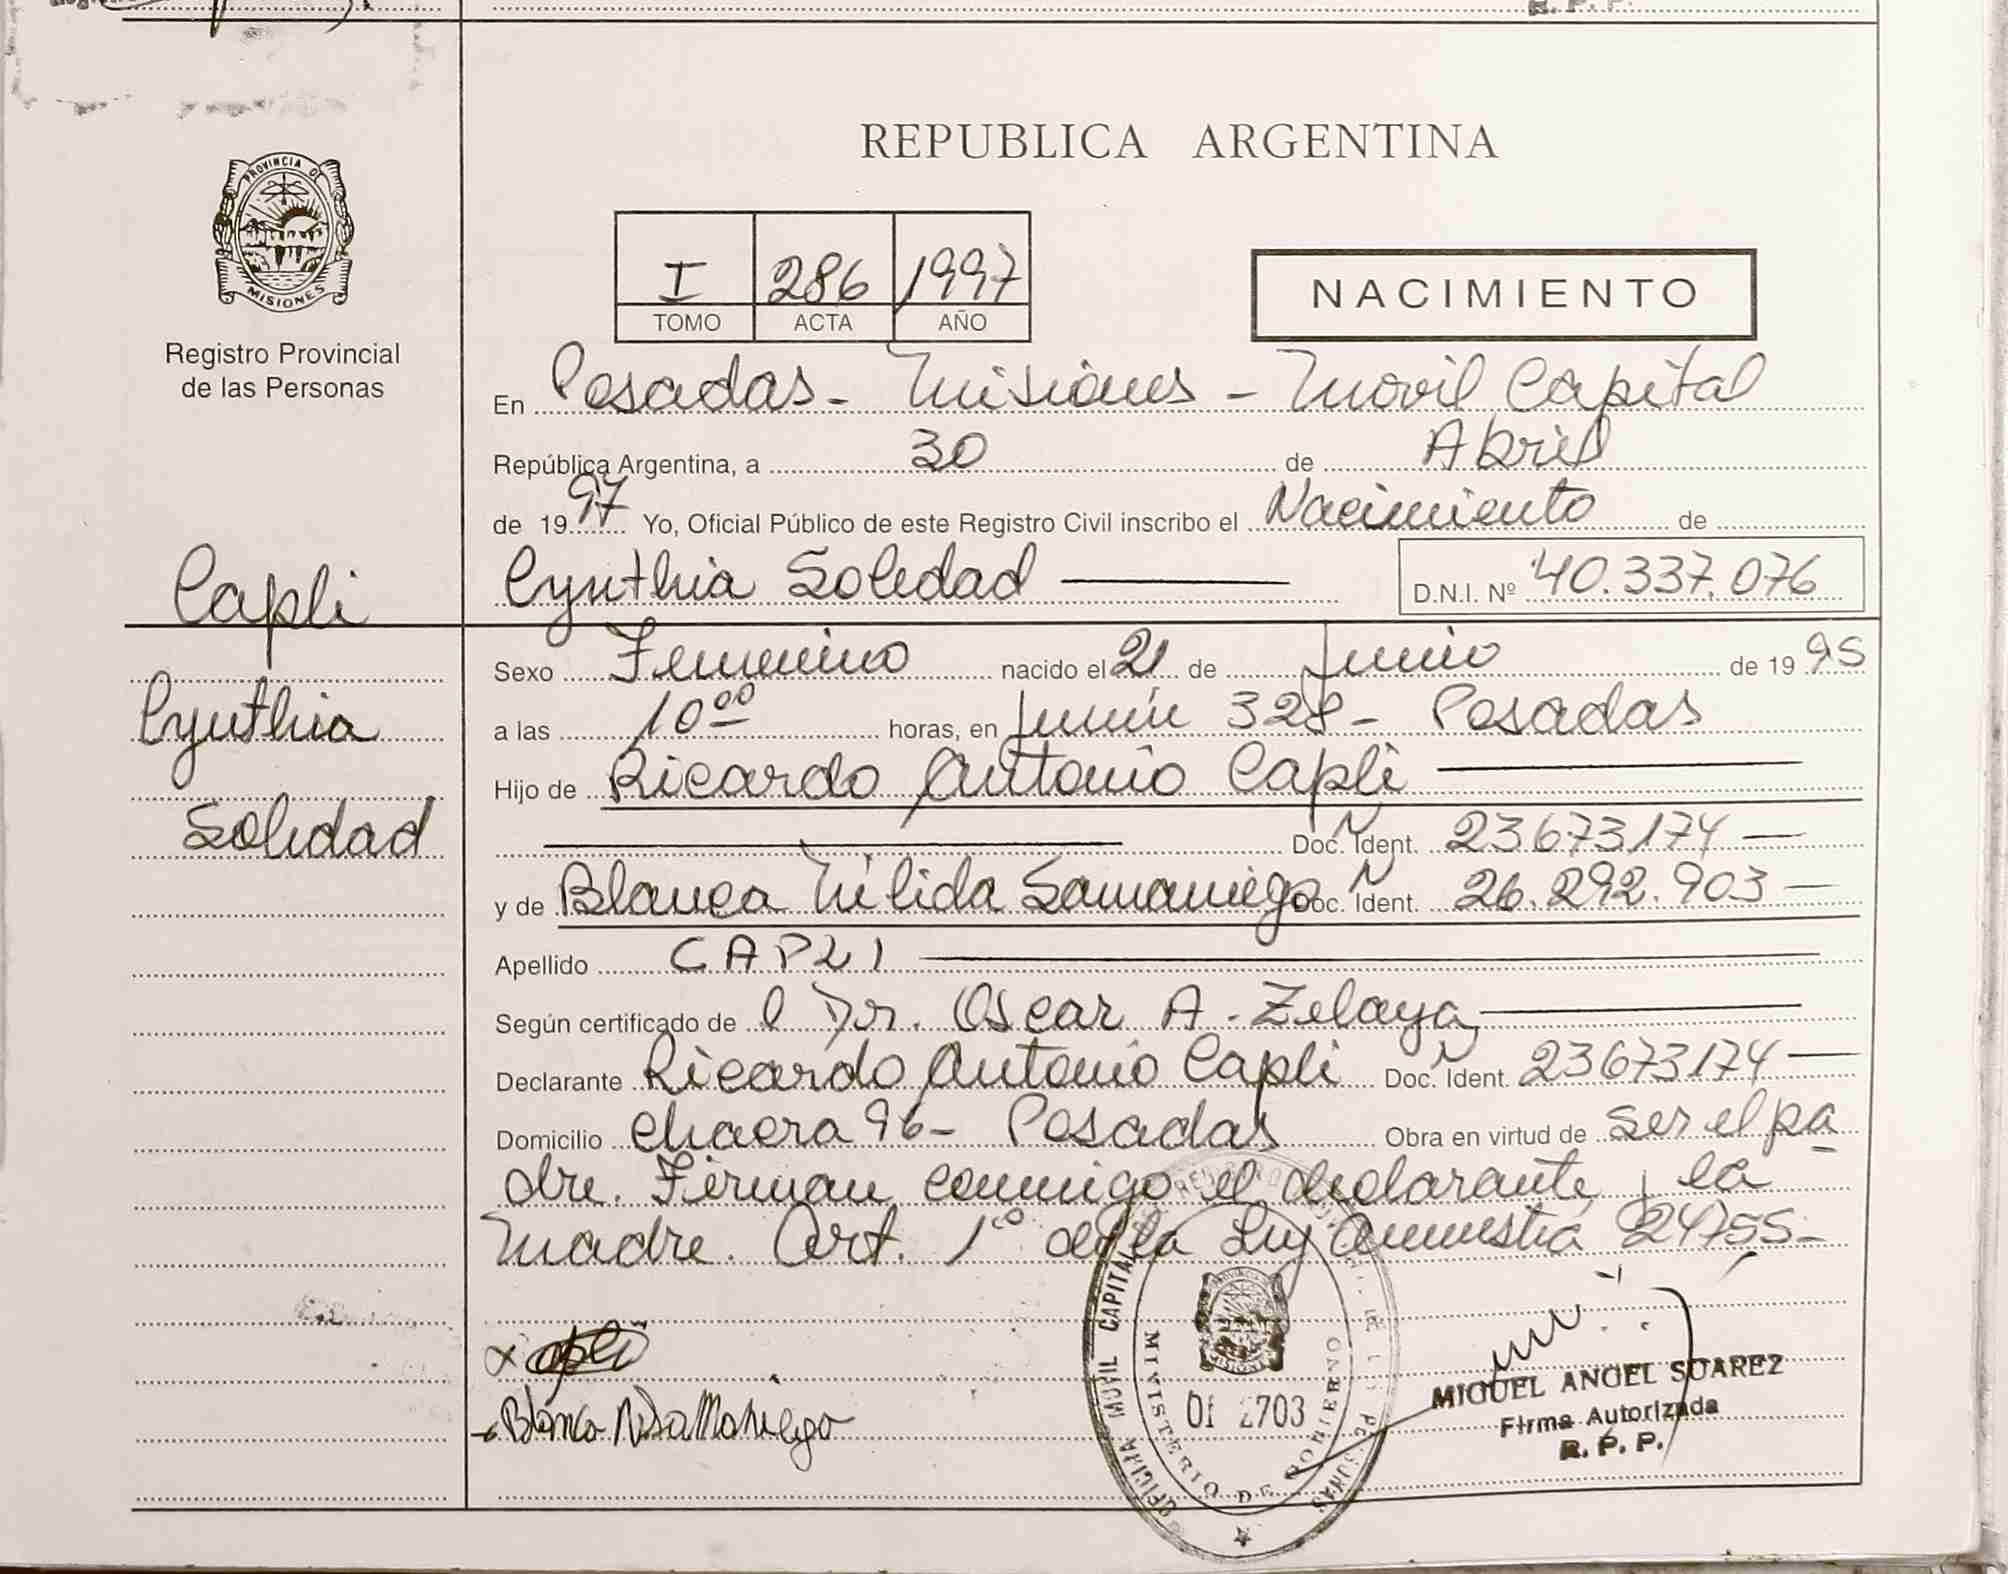 R. P. P.
REPUBLICA ARGENTINA
PROVINCIA DE
MISIONES
Registro Provincial
de las Personas
I 286 1997
TOMO ACTA AÑO
NACIMIENTO
En Posadas - Misiones - Movil Capital
República Argentina, a 30 de Abril
de 1997 Yo, Oficial Público de este Registro Civil inscribo el Nacimiento de
Cynthia Soledad D.N.I. Nº 40.337.076
Capli
Cynthia
Soledad
Sexo Femenino nacido el 21 de Junio de 1995
a las 10 00 horas, en Junín 328 - Posadas
Hijo de Ricardo Antonio Capli
Doc. Ident. N 23673174
y de Blanca Nélida Samaniego Doc. Ident. N 26.292.903
Apellido CAPLI
Según certificado de l Dr. Oscar A. Zelaya
Declarante Ricardo Antonio Capli Doc. Ident. N 23673174
Domicilio Chacra 96 - Posadas Obra en virtud de ser el pa
dre. Firman conmigo el declarante y la
madre. Art. 1º de la Ley Amnistia 24755 -
x Capli
Blanca N Samaniego
OFICINA MOVIL CAPITAL
MINISTERIO DE GOBIERNO
MIGUEL ANGEL SUAREZ
Firma Autorizada
R. P. P.